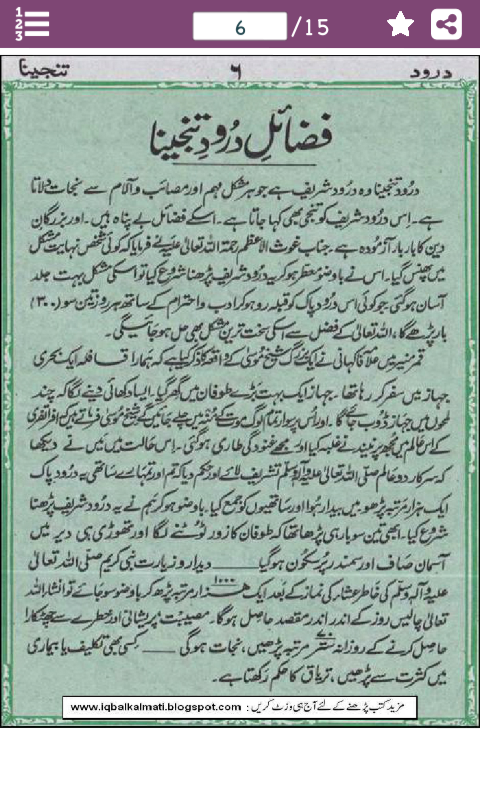 6 /15
درود ٦ تنجینا
فضائلِ درُود تنجینا
درُود تنجینا وہ درُود شریف ہے جو ہر مشکل مہم اور مصائب و آلام سے نجات دلاتا
ہے۔ اِس درُود شریف کو تنجی بھی کہا جاتا ہے۔ اسکے فضائل بے پناہ ہیں۔ اور بزرگان
دین کا بار بار آزمودہ ہے۔ جناب غوث الاعظم رحمۃ اللہ تعالیٰ علیہ نے فرمایا کہ کوئی شخص نہایت مشکل
میں پھنس گیا۔ اس نے باوضو معطر ہو کر یہ درُود شریف پڑھنا شروع کیا تو اسکی مشکل بہت جلد
آسان ہوگئی۔ جو کوئی اس درُود پاک کو قبلہ رو ہو کر ادب و احترام کے ساتھ ہر روز تین سو (۳۰۰)
بار پڑھے گا، اللہ تعالیٰ کے فضل سے اسکی سخت ترین مشکل بھی حل ہو جائیگی۔
قمر منیر میں علاّ فاکہانی نے ایک بزرگ شیخ موسیٰ کے واقعہ کا ذکر کیا ہے کہ ہمارا قافلہ ایک بحری
جہاز میں سفر کر رہا تھا۔ جہاز ایک بہت بڑے طوفان میں گھر گیا۔ ایسا دکھائی دینے لگا کہ چند
لمحوں میں جہاز ڈوب جائے گا۔ اور اُس پر سوار تمام لوگ موت کے منہ میں چلے جائیں گے شیخ موسیٰ فرماتے ہیں افراتفری
کے اس عالم میں مجھ پر نیند نے غلبہ کیا اور مجھے غنودگی طاری ہوگئی۔ اِس حالت میں میں نے دیکھا
کہ سرکار دو عالم صلی اللہ تعالیٰ علیہ وآلہ وسلم تشریف لائے اور حکم دیا کہ تم اور تمہارے ساتھی یہ درود پاک
ایک ہزار مرتبہ پڑھو میں بیدار ہُوا اور ساتھیوں کو جمع کیا۔ باوضو ہو کر ہم نے یہ درود شریف پڑھنا
شروع کیا۔ ابھی تین سو بار ہی پڑھا تھا کہ طوفان کا زور ٹوٹنے لگا اور تھوڑی ہی دیر میں
آسمان صاف اور سمندر پُرسکون ہوگیا ـــــــ دیدار و زیارت نبی کریم صلی اللہ تعالیٰ
علیہ وآلہٖ وسلم کی خاطر عشاء کی نماز کے بعد ایک ہزار ۱۰۰۰ مرتبہ پڑھ کر باوضو سو جائے تو انشاء اللہ
تعالیٰ چالیس روز کے اندر اندر مقصد حاصل ہوگا۔ مصیبت پریشانی اور خطرے سے چھٹکارا
حاصل کرنے کے روزانہ ستّر ۷۰ مرتبہ پڑھیں، نجات ہوگی ـــــ کِسی بھی تکلیف یا بیماری
میں کثرت سے پڑھیں، تریاق کا حکم رکھتا ہے۔
مزید کتب پڑھنے کے لئے آج ہی وزٹ کریں : www.iqbalkalmati.blogspot.com